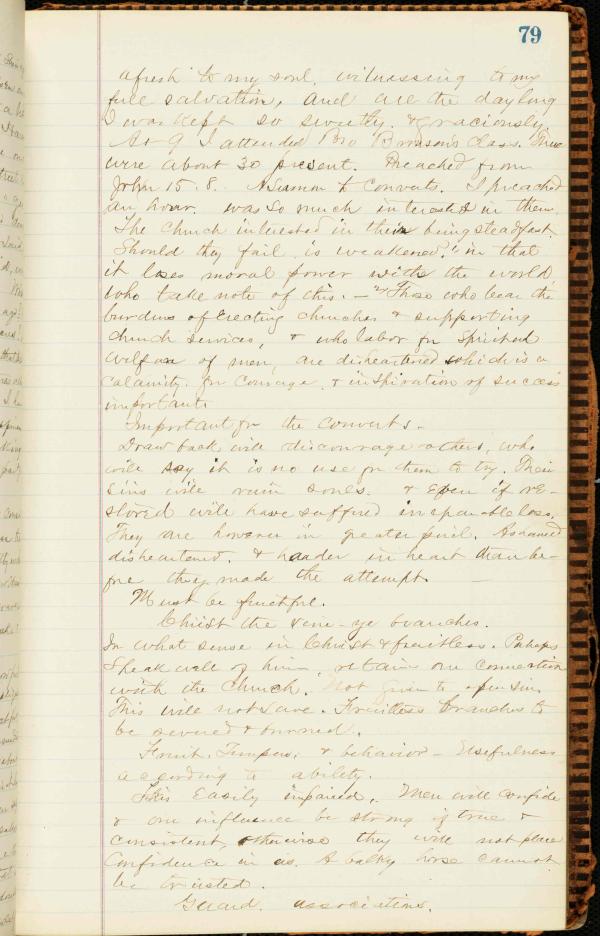 79
afresh to my soul, witnessing to my
full salvation, and all the day long
I was kept so sweetly & graciously
At 9 I attended Bro Brunson's Class. There
were about 30 present. Preached from
John 15.8. A Sermon to Converts. I preached
an hour. was so much interested in them.
The Church interested in their being steadfast.
Should they fail is weakened, in that
it loses moral power with the world
who take note of this. — Those who bear the
burdens of Erecting churches & supporting
church services, & who labor for Spiritual
welfare of men, are disheartened which is a
calamity. for Courage & inspiration of success
important.
Important for the converts.
Draw back will discourage others, who
will say it is no use for them to try. Their
sins will ruin souls. & Even if re-
stored will have suffered inseparable loss.
They are however in greater peril. Ashamed
disheartened. & harder in heart than be-
fore they made the attempt. —
Must be fruitful.
Christ the vine - ye branches.
In what sense in Christ & fruitless. Perhaps
Speak well of him, retain our connection
with the Church. Not given to open sin
This will not save. Fruitless branches to
be severed & burned.
Fruit. Tempers, & behavior - Usefulness
according to ability.
This Easily impaired. Men will confide
& our influence be strong if true &
consistent, otherwise they will not place
Confidence in us. A balky horse cannot
be trusted.
Guard associations.